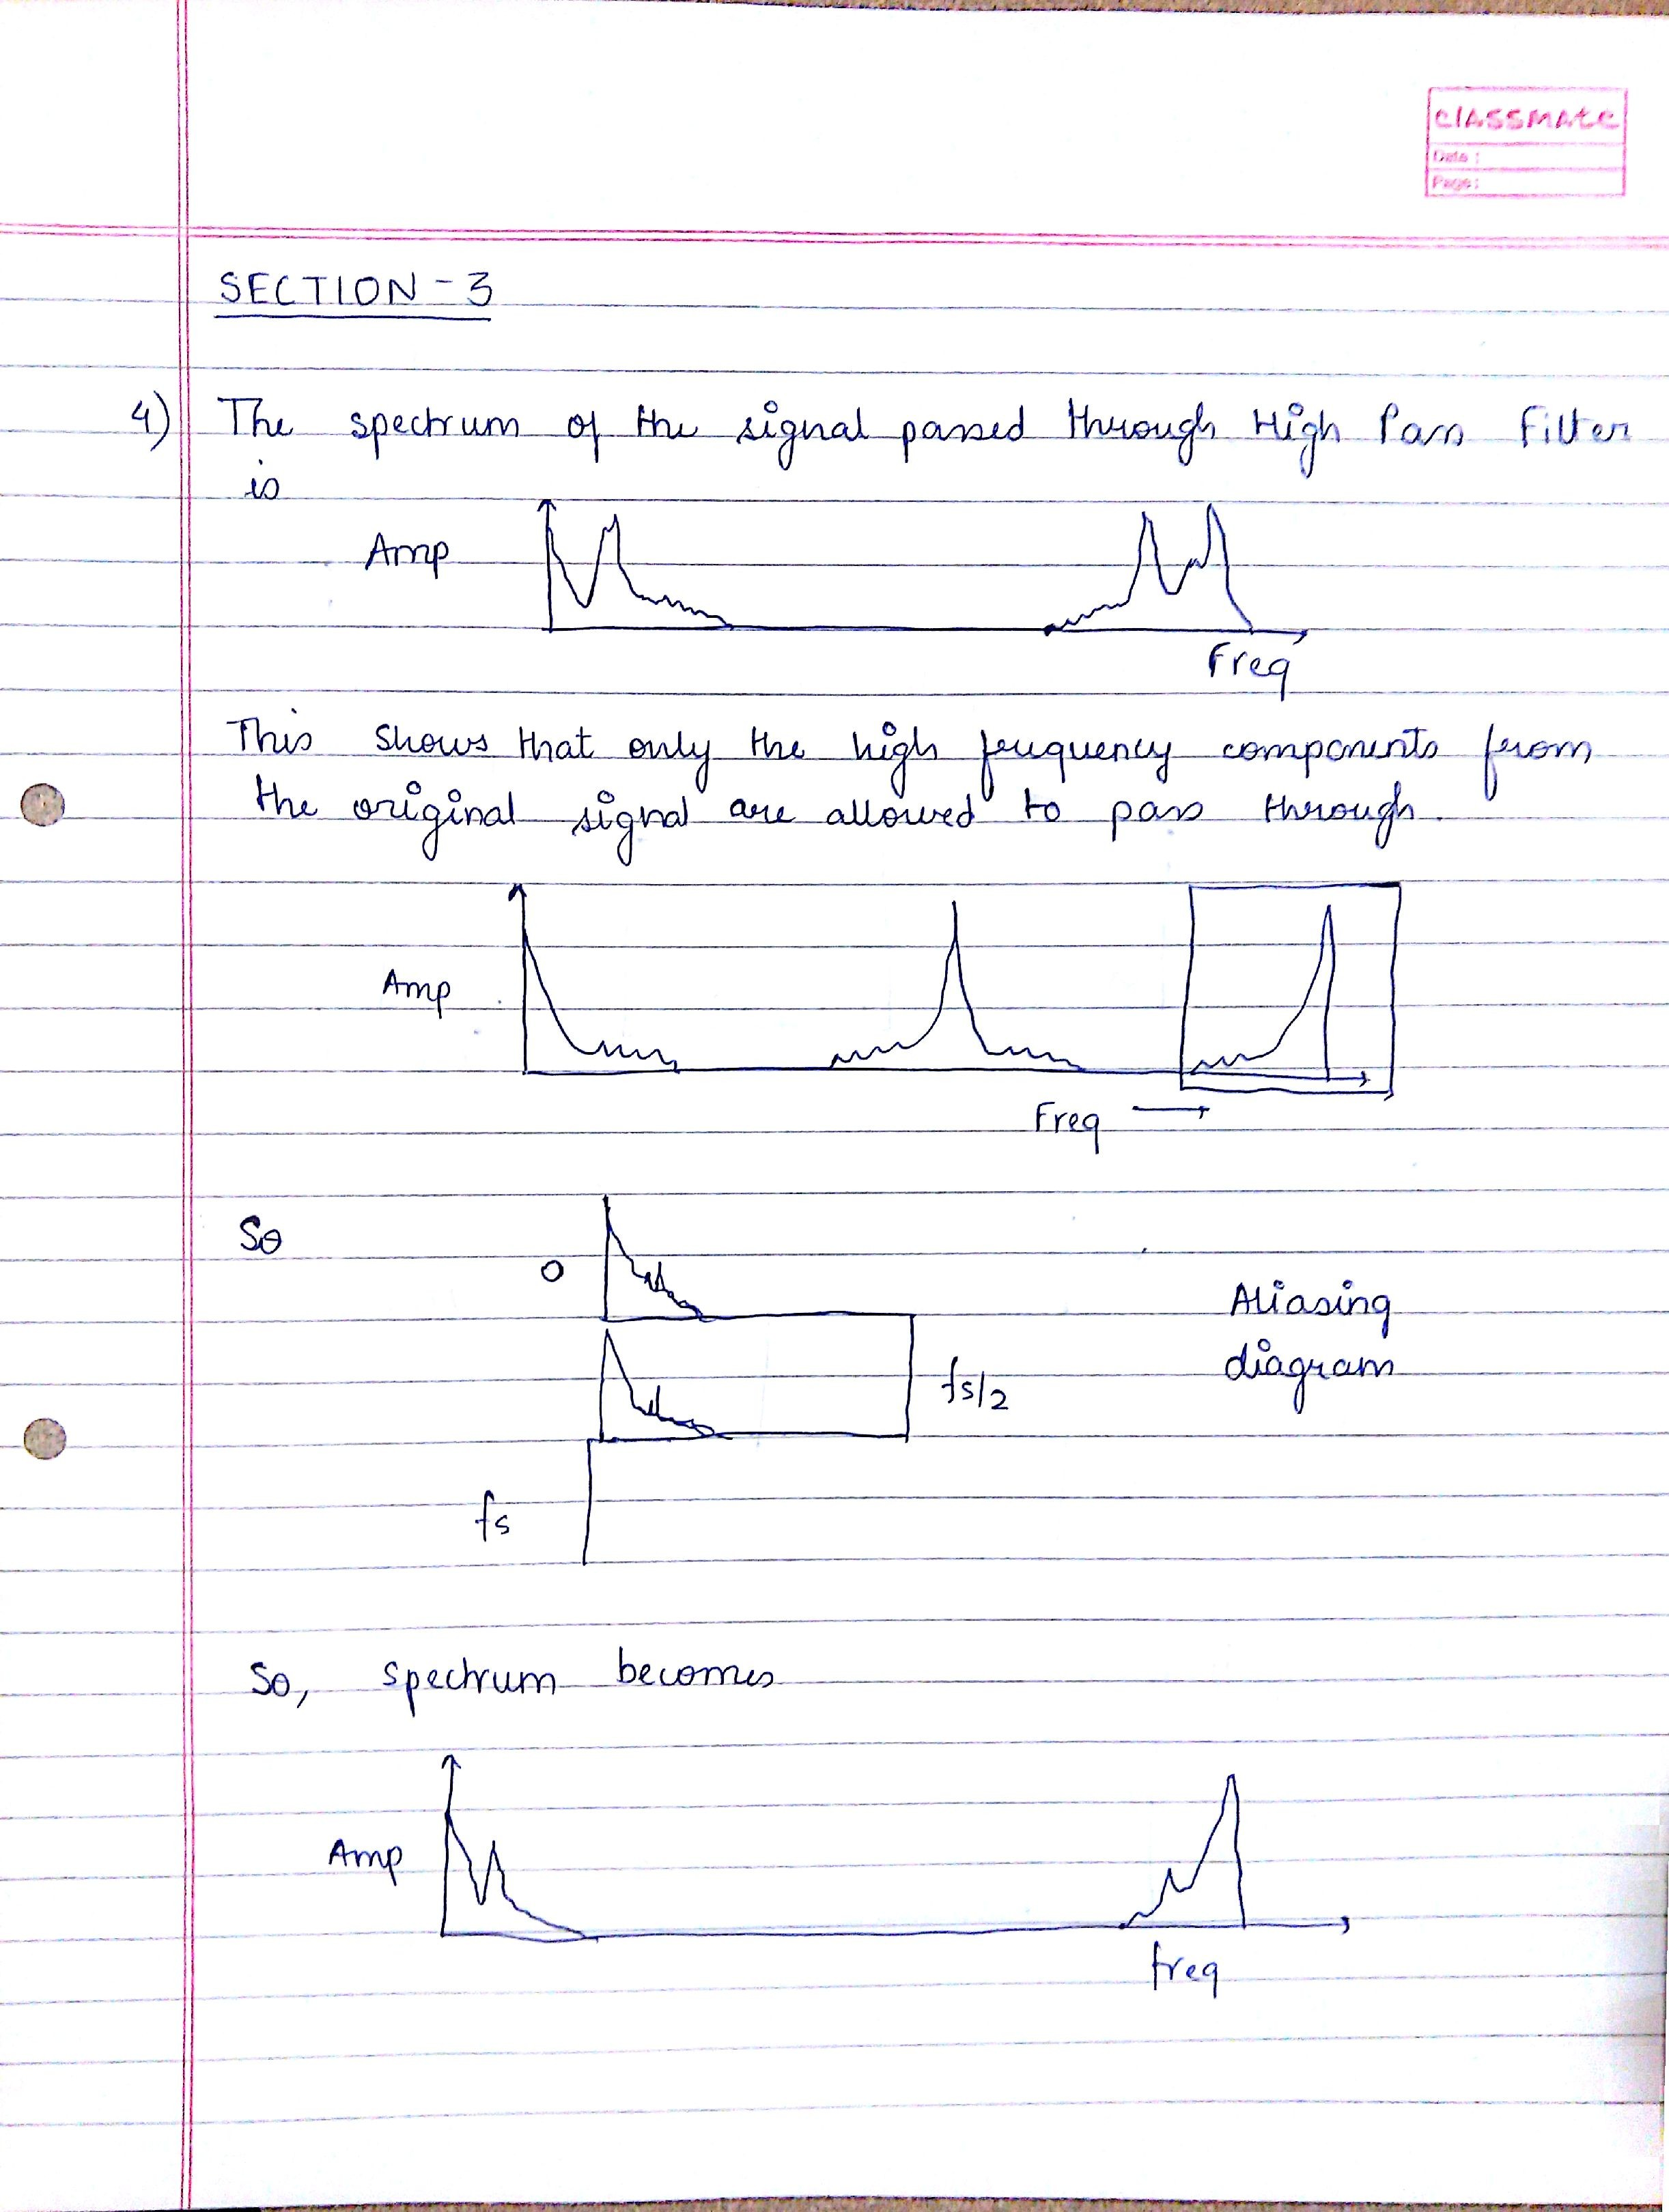 classmate
Date :
Page :
SECTION - 3
4) The spectrum of the signal passed through High Pass Filter
is
Amp
Freq
This shows that only the high frequency components from
the original signal are allowed to pass through.
Amp
Freq →
So
0
Aliasing
diagram
fs/2
fs
So, spectrum becomes
Amp
freq